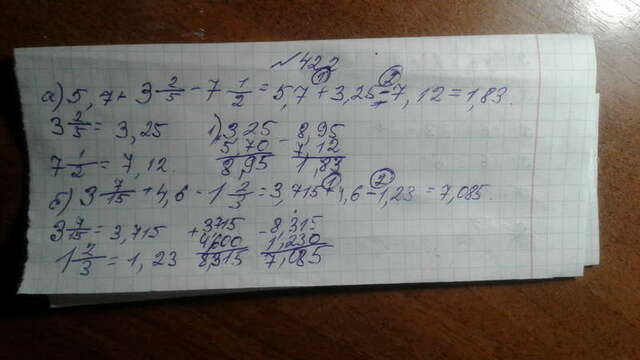 № 422
а) 5,7 + 3 2/5 - 7 1/2 = 5,7 + 3,25 - 7,12 = 1,83.
3 2/5 = 3,25
7 1/2 = 7,12.
1) 3,25
5,70
8,95
- 8,95
7,12
1,83
б) 3 7/15 + 4,6 - 1 2/3 = 3,715 + 4,6 - 1,23 = 7,085.
3 7/15 = 3,715
1 2/3 = 1,23
+ 3,715
4,600
8,315
- 8,315
1,230
7,085